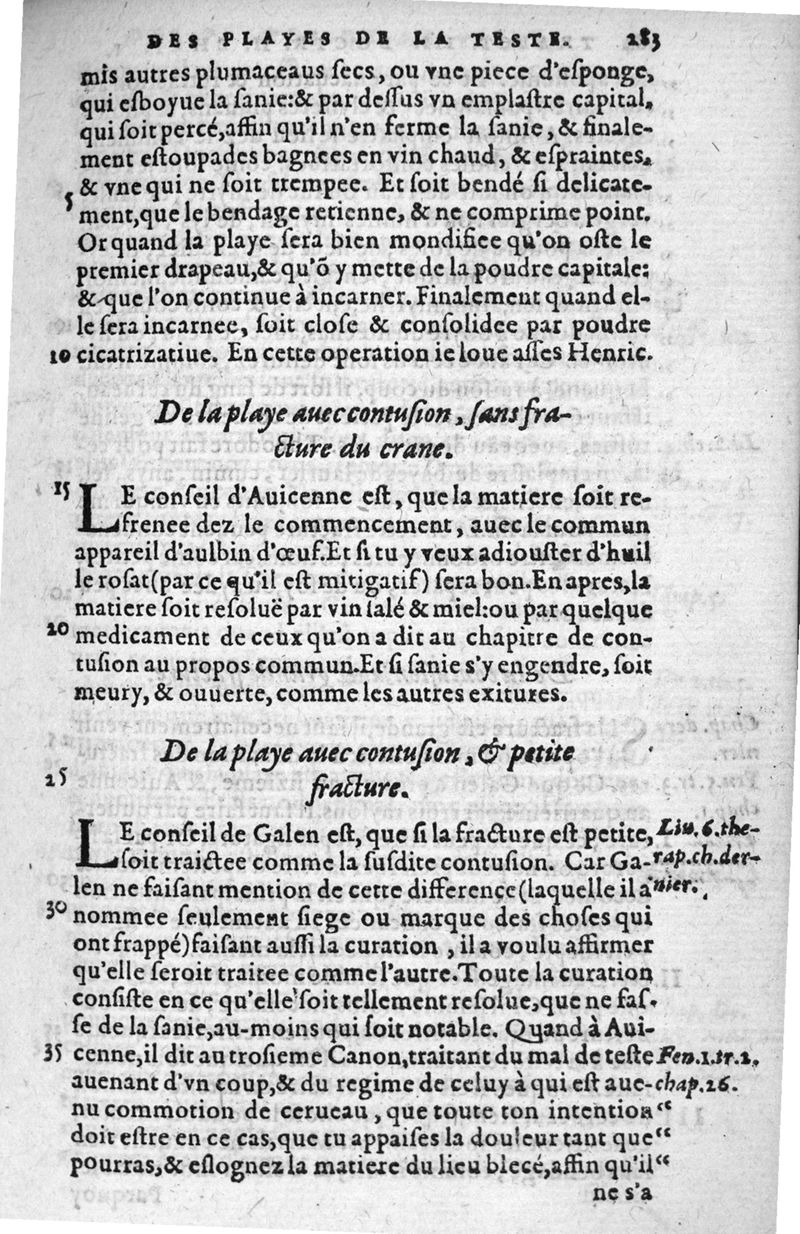 DES PLAYES DE LA TESTE. 283
mis autres plumaceaus ſecs, ou vne piece d'eſponge,
qui eſboyue la ſanie:& par deſſus vn emplaſtre capital,
qui ſoit percé,affin qu'il n'en ferme la ſanie, & finale-
ment eſtoupades bagnees en vin chaud, & eſpraintes,
5 & vne qui ne ſoit trempee. Et ſoit bendé ſi delicate-
ment,que le bendage retienne, & ne comprime point.
Or quand la playe ſera bien mondifiee qu'on oſte le
premier drapeau,& qu'õ y mette de la poudre capitale:
& que l'on continue à incarner. Finalement quand el-
le ſera incarnee, ſoit cloſe & conſolidee par poudre
10 cicatrizatiue. En cette operation ie loue aſſes Henric.
De la playe auec contuſion, ſans fra-
cture du crane.
15 LE conſeil d'Auicenne eſt, que la matiere ſoit re-
frenee dez le commencement, auec le commun
appareil d'aulbin d'œuf.Et ſi tu y veux adiouſter d'huil
le roſat(par ce qu'il eſt mitigatif) ſera bon.En apres,la
matiere ſoit reſoluë par vin ſalé & miel:ou par quelque
20 medicament de ceux qu'on a dit au chapitre de con-
tuſion au propos commun.Et ſi ſanie s'y engendre, ſoit
meury, & ouuerte, comme les autres exitures.
De la playe auec contuſion, & petite
25 fracture.
LE conſeil de Galen eſt, que ſi la fracture eſt petite, Liu. 6. the-
ſoit traictee comme la ſuſdite contuſion. Car Ga- rap. ch. der-
len ne faiſant mention de cette difference(laquelle il a nier.
30 nommee ſeulement ſiege ou marque des choſes qui
ont frappé)faiſant auſſi la curation , il a voulu affirmer
qu'elle ſeroit traitee comme l'autre.Toute la curation
conſiſte en ce qu'elle ſoit tellement reſolue,que ne faſ-
ſe de la ſanie,au-moins qui ſoit notable. Quand à Aui-
35 cenne,il dit au troſieme Canon,traitant du mal de teſte Fen.1.tr.2.
auenant d'vn coup,& du regime de celuy à qui eſt aue- chap.26.
nu commotion de cerueau , que toute ton intention “
doit eſtre en ce cas,que tu appaiſes la douleur tant que “
pourras,& eſlognez la matiere du lieu blecé,affin qu'il “
ne s'a